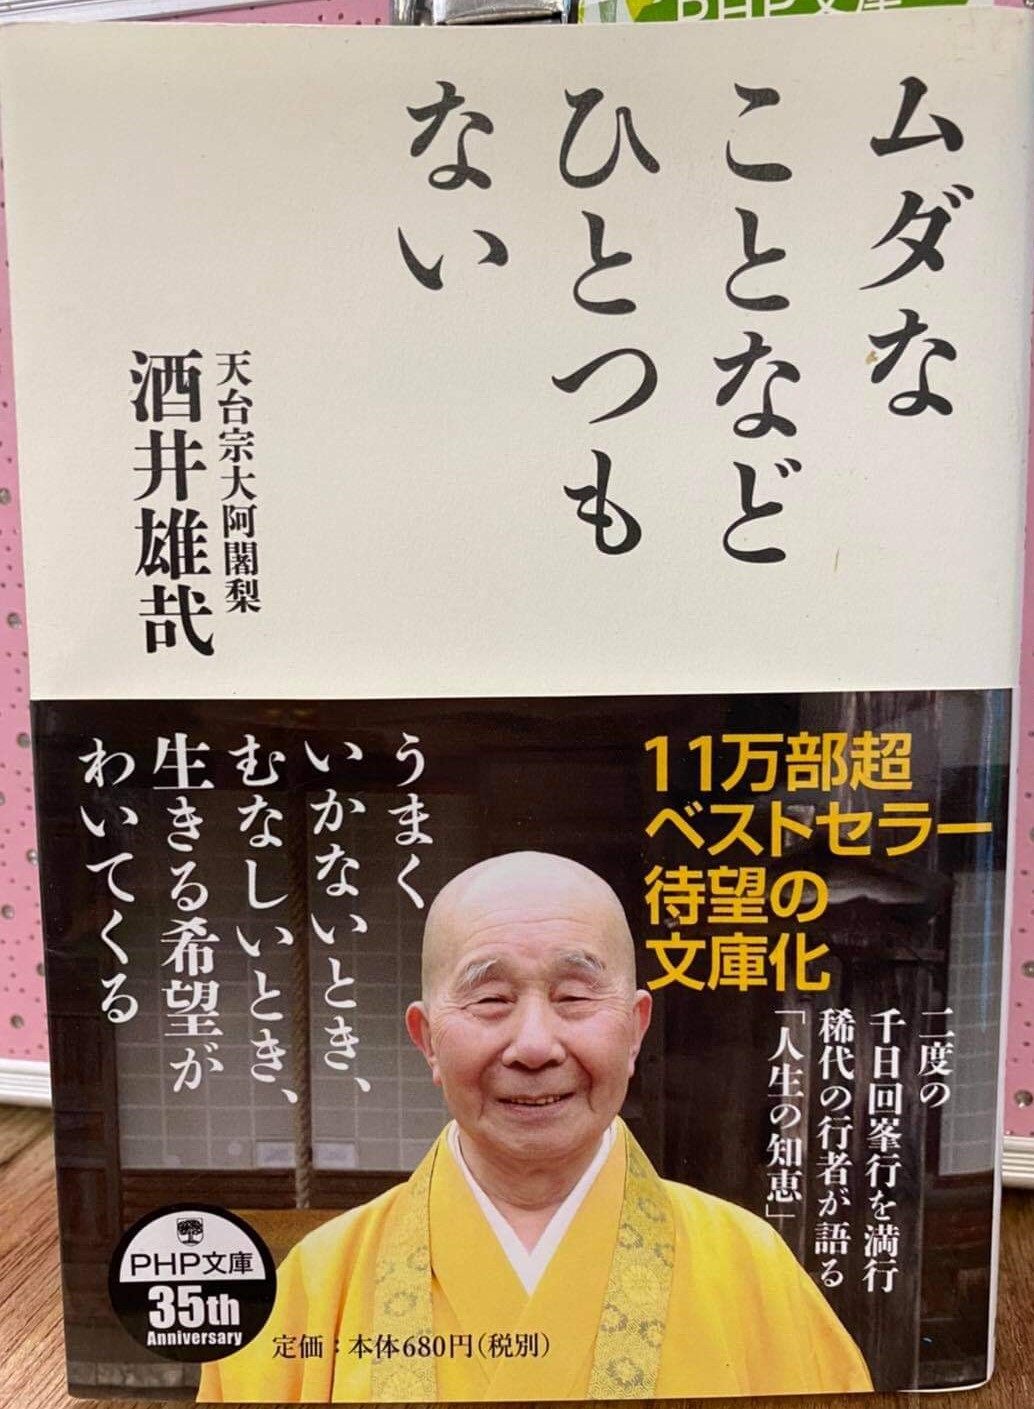 PHP文庫
ムダな
ことなど
ひとつも
ない
天台宗大阿闍梨
酒井雄哉
11万部超
ベストセラー
待望の
文庫化
二度の
千日回峯行を満行
稀代の行者が語る
「人生の知恵」
うまく
いかないとき、
むなしいとき、
生きる希望が
わいてくる
PHP文庫
35th
Anniversary
定価：本体680円（税別）